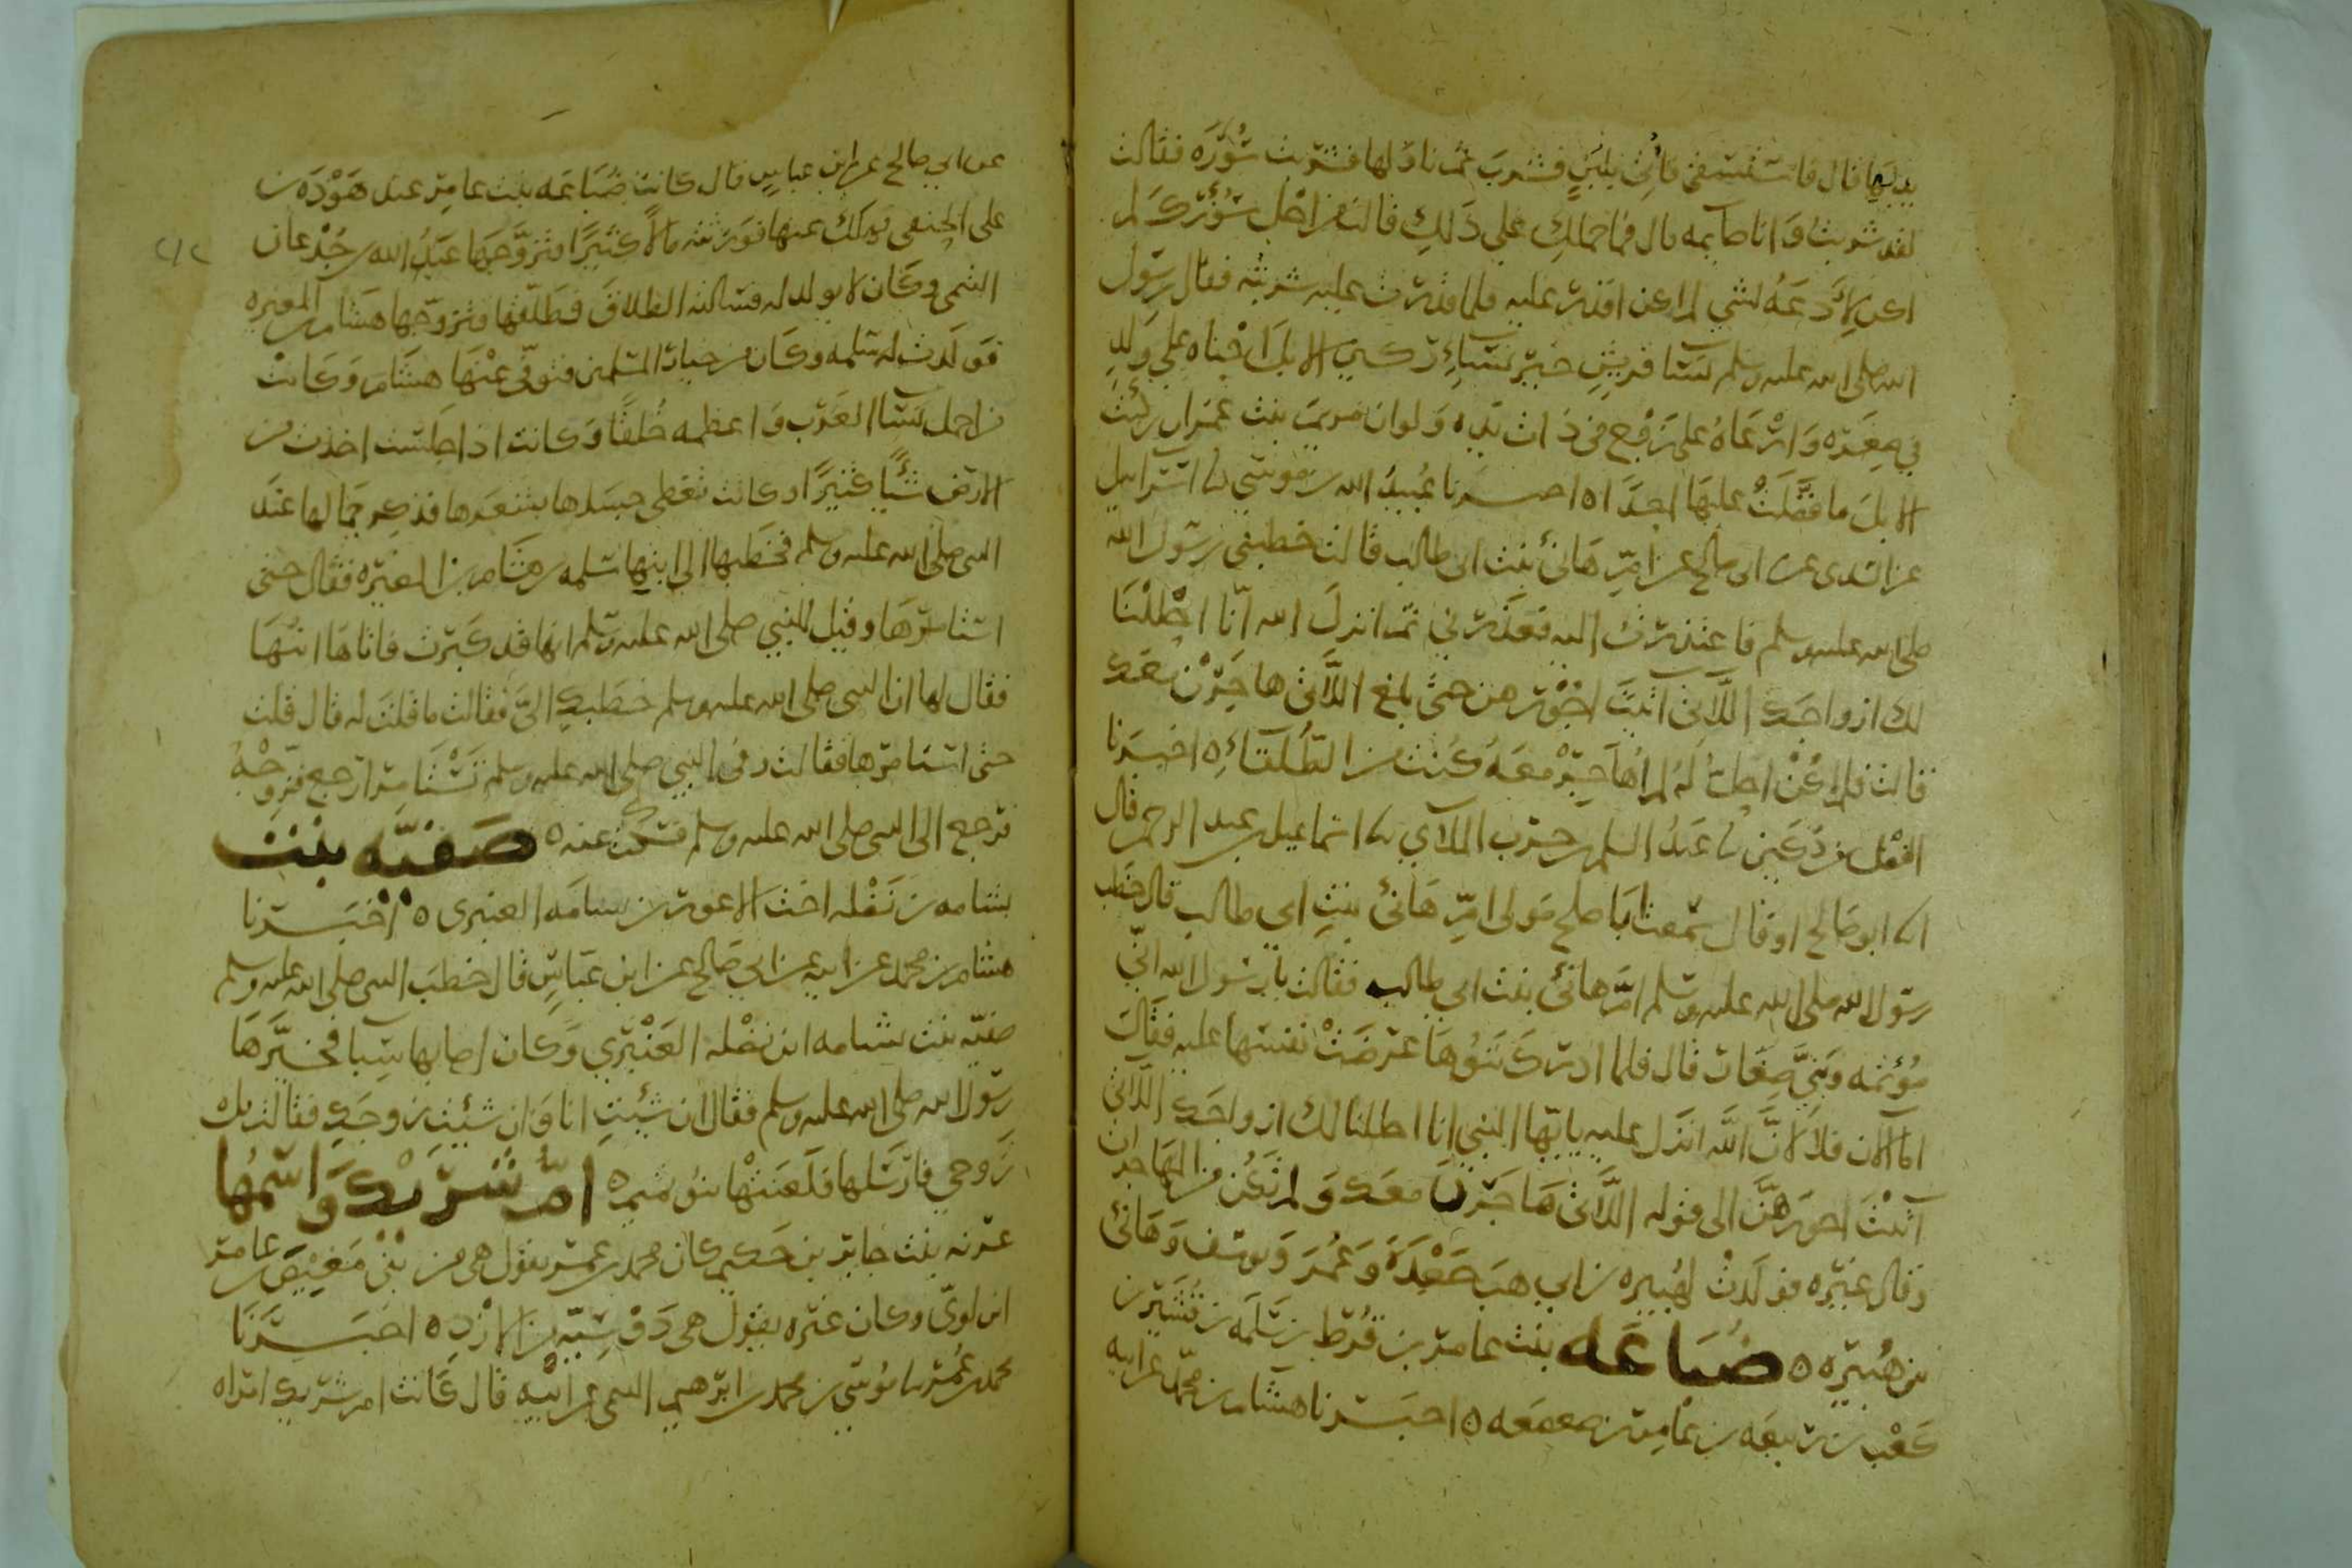 يديها قال فاستسقى فأتي بلبن فشرب ثم ناولها فشربت سؤره فقالت
لقد شربت وانا صايمه قال فما حملك على ذلك قالت من اجل سؤرك لم
اكن لأدعه لشي لم اكن اقدر عليه فلما قدرت عليه شربته فقال رسول
الله صلى الله عليه وسلم نسا قريش خير نساء ركبن الابل احناه على ولد
في صغره وارعاه على زوج في ذات يده ولو ان مريم بنت عمران ركبت
الابل ما فضلت عليها احدا ه اخبرنا عبيد الله بن موسى نا اسرايل
عن السدي عن ابي صالح عن ام هانئ بنت ابي طالب قالت خطبني رسول الله
صلى الله عليه وسلم فاعتذرت اليه فعذرني ثم انزل الله انا احللنا
لك ازواجك اللاتي آتيت اجورهن حتى بلغ اللاتي هاجرن معك
قالت فلم اكن احل له لم اهاجر معه كنت من الطلقاء ه اخبرنا
الفضل بن دكين نا عبد السلم بن حرب الملاي نا اسماعيل بن عبد الرحمن قال
نا ابو صالح او قال سمعت ابا صالح مولى ام هانئ بنت ابي طالب قال خطب
رسول الله صلى الله عليه وسلم ام هانئ بنت ابي طالب فقالت يا رسول الله اني
مؤتمه وبني صغار قال فلما ادرك بنوها عرضت نفسها عليه فقال
اما الان فلا لان الله انزل عليه يا ايها النبي انا احللنا لك ازواجك اللاتي
آتيت اجورهن الى قوله اللاتي هاجرن معك ولم تكن من المهاجرات
وقال غيره فولدت لهبيره بن ابي وهب جعدة وعمر ويوسف وهانئ
بن هبيره ه ضباعه بنت عامر بن قرط بن سلمه بن قشير بن
كعب بن ربيعه بن عامر بن صعصعه ه اخبرنا هشام بن محمد عن ابيه
عن ابي صالح عن ابن عباس قال كانت ضباعه بنت عامر عند هوذه بن
على الحنفي فهلك عنها فورثته مالا كثيرا فتزوجها عبد الله بن جدعان
التيمي وكان لا يولد له فسالته الطلاق فطلقها فتزوجها هشام بن المغيره
فولدت له سلمه وكان من خيار المسلمين فتوفي عنها هشام وكانت
من اجمل نسا العرب واعظمه خلقا وكانت اذا جلست اخذت من
الارض شيئا كثيرا وكانت تغطي جسدها بشعرها فذكر جمالها عند
النبي صلى الله عليه وسلم فخطبها الى ابنها سلمه بن هشام بن المغيره فقال حتى
استامرها وقيل للنبي صلى الله عليه وسلم انها قد كبرت فاتاها ابنها
فقال لها ان النبي صلى الله عليه وسلم خطبك الي فقالت ما قلت له قال قلت
حتى استامرها فقالت وفي النبي صلى الله عليه وسلم تستامر ارجع فزوجه
فرجع الى النبي صلى الله عليه وسلم فسكت عنه ه صفيه بنت
بشامه بن نضله اخت الاعور بن بشامه العنبري ه اخبرنا
هشام بن محمد عن ابيه عن ابي صالح عن ابن عباس قال خطب النبي صلى الله عليه وسلم
صفيه بنت بشامه ابن نضله العنبري وكان اصابها سبا فخيرها
رسول الله صلى الله عليه وسلم فقال ان شئت انا وان شئت زوجك فقالت بل
زوجي فارسلها فلعنتها بنو تميم ه ام شريك واسمها
غزيه بنت جابر بن حكيم كان محمد بن عمر يقول هي من بني معيص بن عامر
ابن لوي وكان غيره يقول هي دوسيه من الازد ه اخبرنا
محمد بن عمر نا موسى بن محمد بن ابرهيم التيمي عن ابيه قال كانت ام شريك امراه